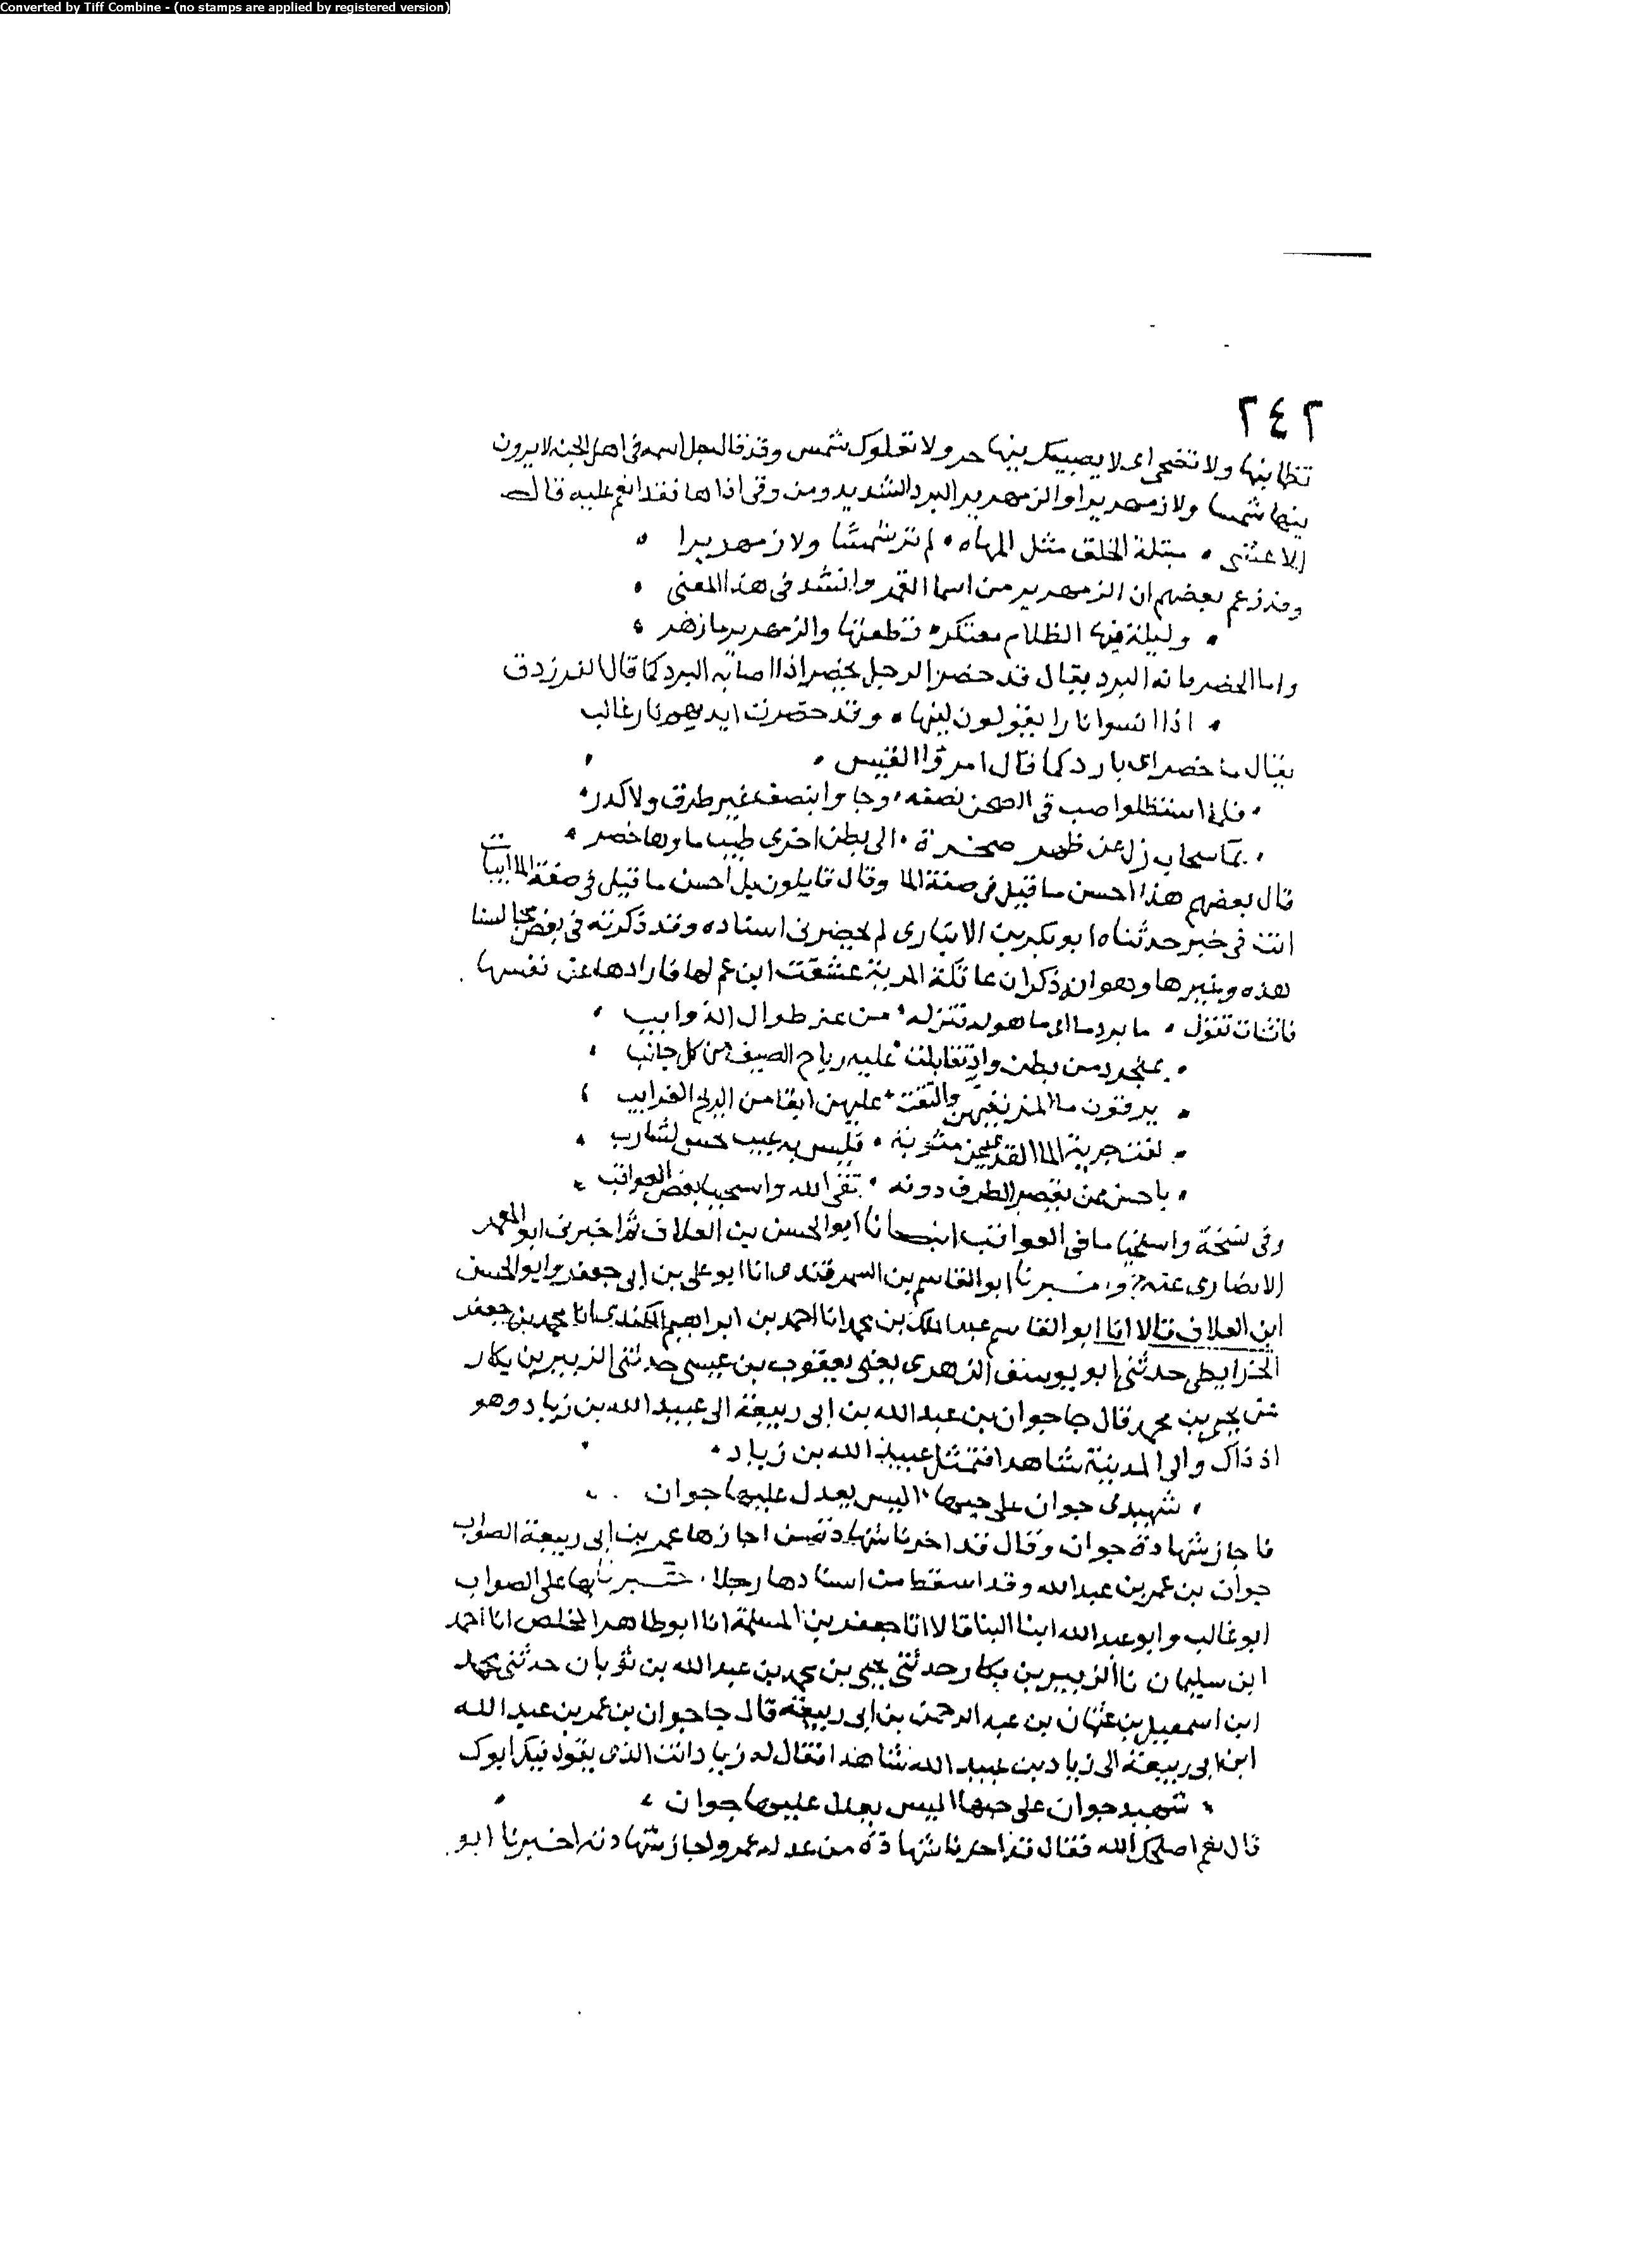 Converted by Tiff Combine - (no stamps are applied by registered version)
٢٤٢
تظا فيها ولا تضحى اى لا يصيبك فيها حر ولا تعلوك شمس وقد قال جل اسمه فى اهل الجنة لا يرون
فيها شمسا ولا زمهريرا والزمهرير البرد الشديد ومن وقى اذاها فقد انعم عليه قال
الاعشى • مبتلة الخلق مثل المهاه • لم تر شمسا ولا زمهريرا •
وقد زعم بعضهم ان الزمهرير من اسما القمر وانشد فى هذا المعنى •
• وليلة فيها الظلام معتكر • قطعتها والزمهرير ما زهر •
واما الخضر فانه البرد يقال قد خضر الرجل يخضر اذا اصابه البرد كما قال الفرزدق
• اذا انسوا نارا يقولون ليتها • وقد حضرت ايديهم نار غالب
يقال ما خصر اى بارد كما قال امرؤ القيس •
• فلما استظلوا صب فى الصحن نصفه • وجاوا بنصف غير طرق ولا كدر •
• بما سحاب زل عن ظهر صخرة • الى بطن اخرى طيب ماوها خصر •
قال بعضهم هذا احسن ما قيل فى صفة الما وقال قايلون بل احسن ما قيل فى صفة الما ابيات
اتت فى خبر حدثناه ابو بكر بن الانبارى لم يحضرنى اسناده وقد ذكرته فى بعض مجالسنا
هذه وغيرها وهو ان ذكر ان عاتكة المرية عشقت ابن عم لها فارادها عن نفسها
فانشات تقول • ما برد ما اى ما هوله تنزله • من عز طوال الذوايب •
• بمنجرد من بطن واد تقابلت • عليه رياح الصيف من كل جانب •
• يرقون ما المزن فيهن والتقت • عليهن انفا من الريح الغرايب •
• نفت جرية الما القذى عن متونه • فليس به عيب تحس لشارب •
• باحسن ممن يقصر الطرف دونه • تقى الله واستحيا بعض العواقب •
وفى نسخة واستحيا ما فى العواقب انبانا ابو الحسن بن العلاف ثم اخبرنى ابو المعمر
الانصارى عنه ح واخبرنا ابو القاسم بن السمرقندى انا ابو على بن ابى جعفر وابو الحسن
ابن العلاف قالا انا ابو القاسم عبد الملك بن محمد انا احمد بن ابراهيم الكندى انا محمد بن جعفر
الخرايطى حدثنى ابو يوسف الزهرى يعنى يعقوب بن عيسى حدثنى الزبير بن بكار
عن يحيى بن محمد قال جا جوان بن عبد الله بن ابى ربيعة الى عبيد الله بن زياد وهو
اذ ذاك والى المدينة شاهدا فتمثل عبيد الله بن زياد •
• شهيدى جوان على حبها • اليس بعدل عليها جوان •
فاجاز شهادة جوان وقال قد اجزنا شهادة من اجازها عمر بن ابى ربيعة الصواب
جوان بن عمر بن عبد الله وقد اسقط من اسنادها رجلا • خبرنا بها على الصواب
ابو غالب وابو عبد الله ابنا البنا قالا انا جعفر بن المسلمة انا ابو طاهر المخلص انا احمد
ابن سليمان نا الزبير بن بكار حدثنى يحيى بن محمد بن عبد الله بن ثوبان حدثنى محمد
ابن اسمعيل بن عثمان بن عبد الرحمن بن ابى ربيعة قال جا جوان بن عمر بن عبد الله
ابن ابى ربيعة الى زياد بن عبيد الله شاهدا فقال له زياد انت الذى يقول فيك ابوك
• شهيد جوان على حبها اليس بعدل عليها جوان •
قال نعم اصلحك الله فقال قد اجزنا شهادة من عدله عمر واجاز شهادته اخبرنا ابو